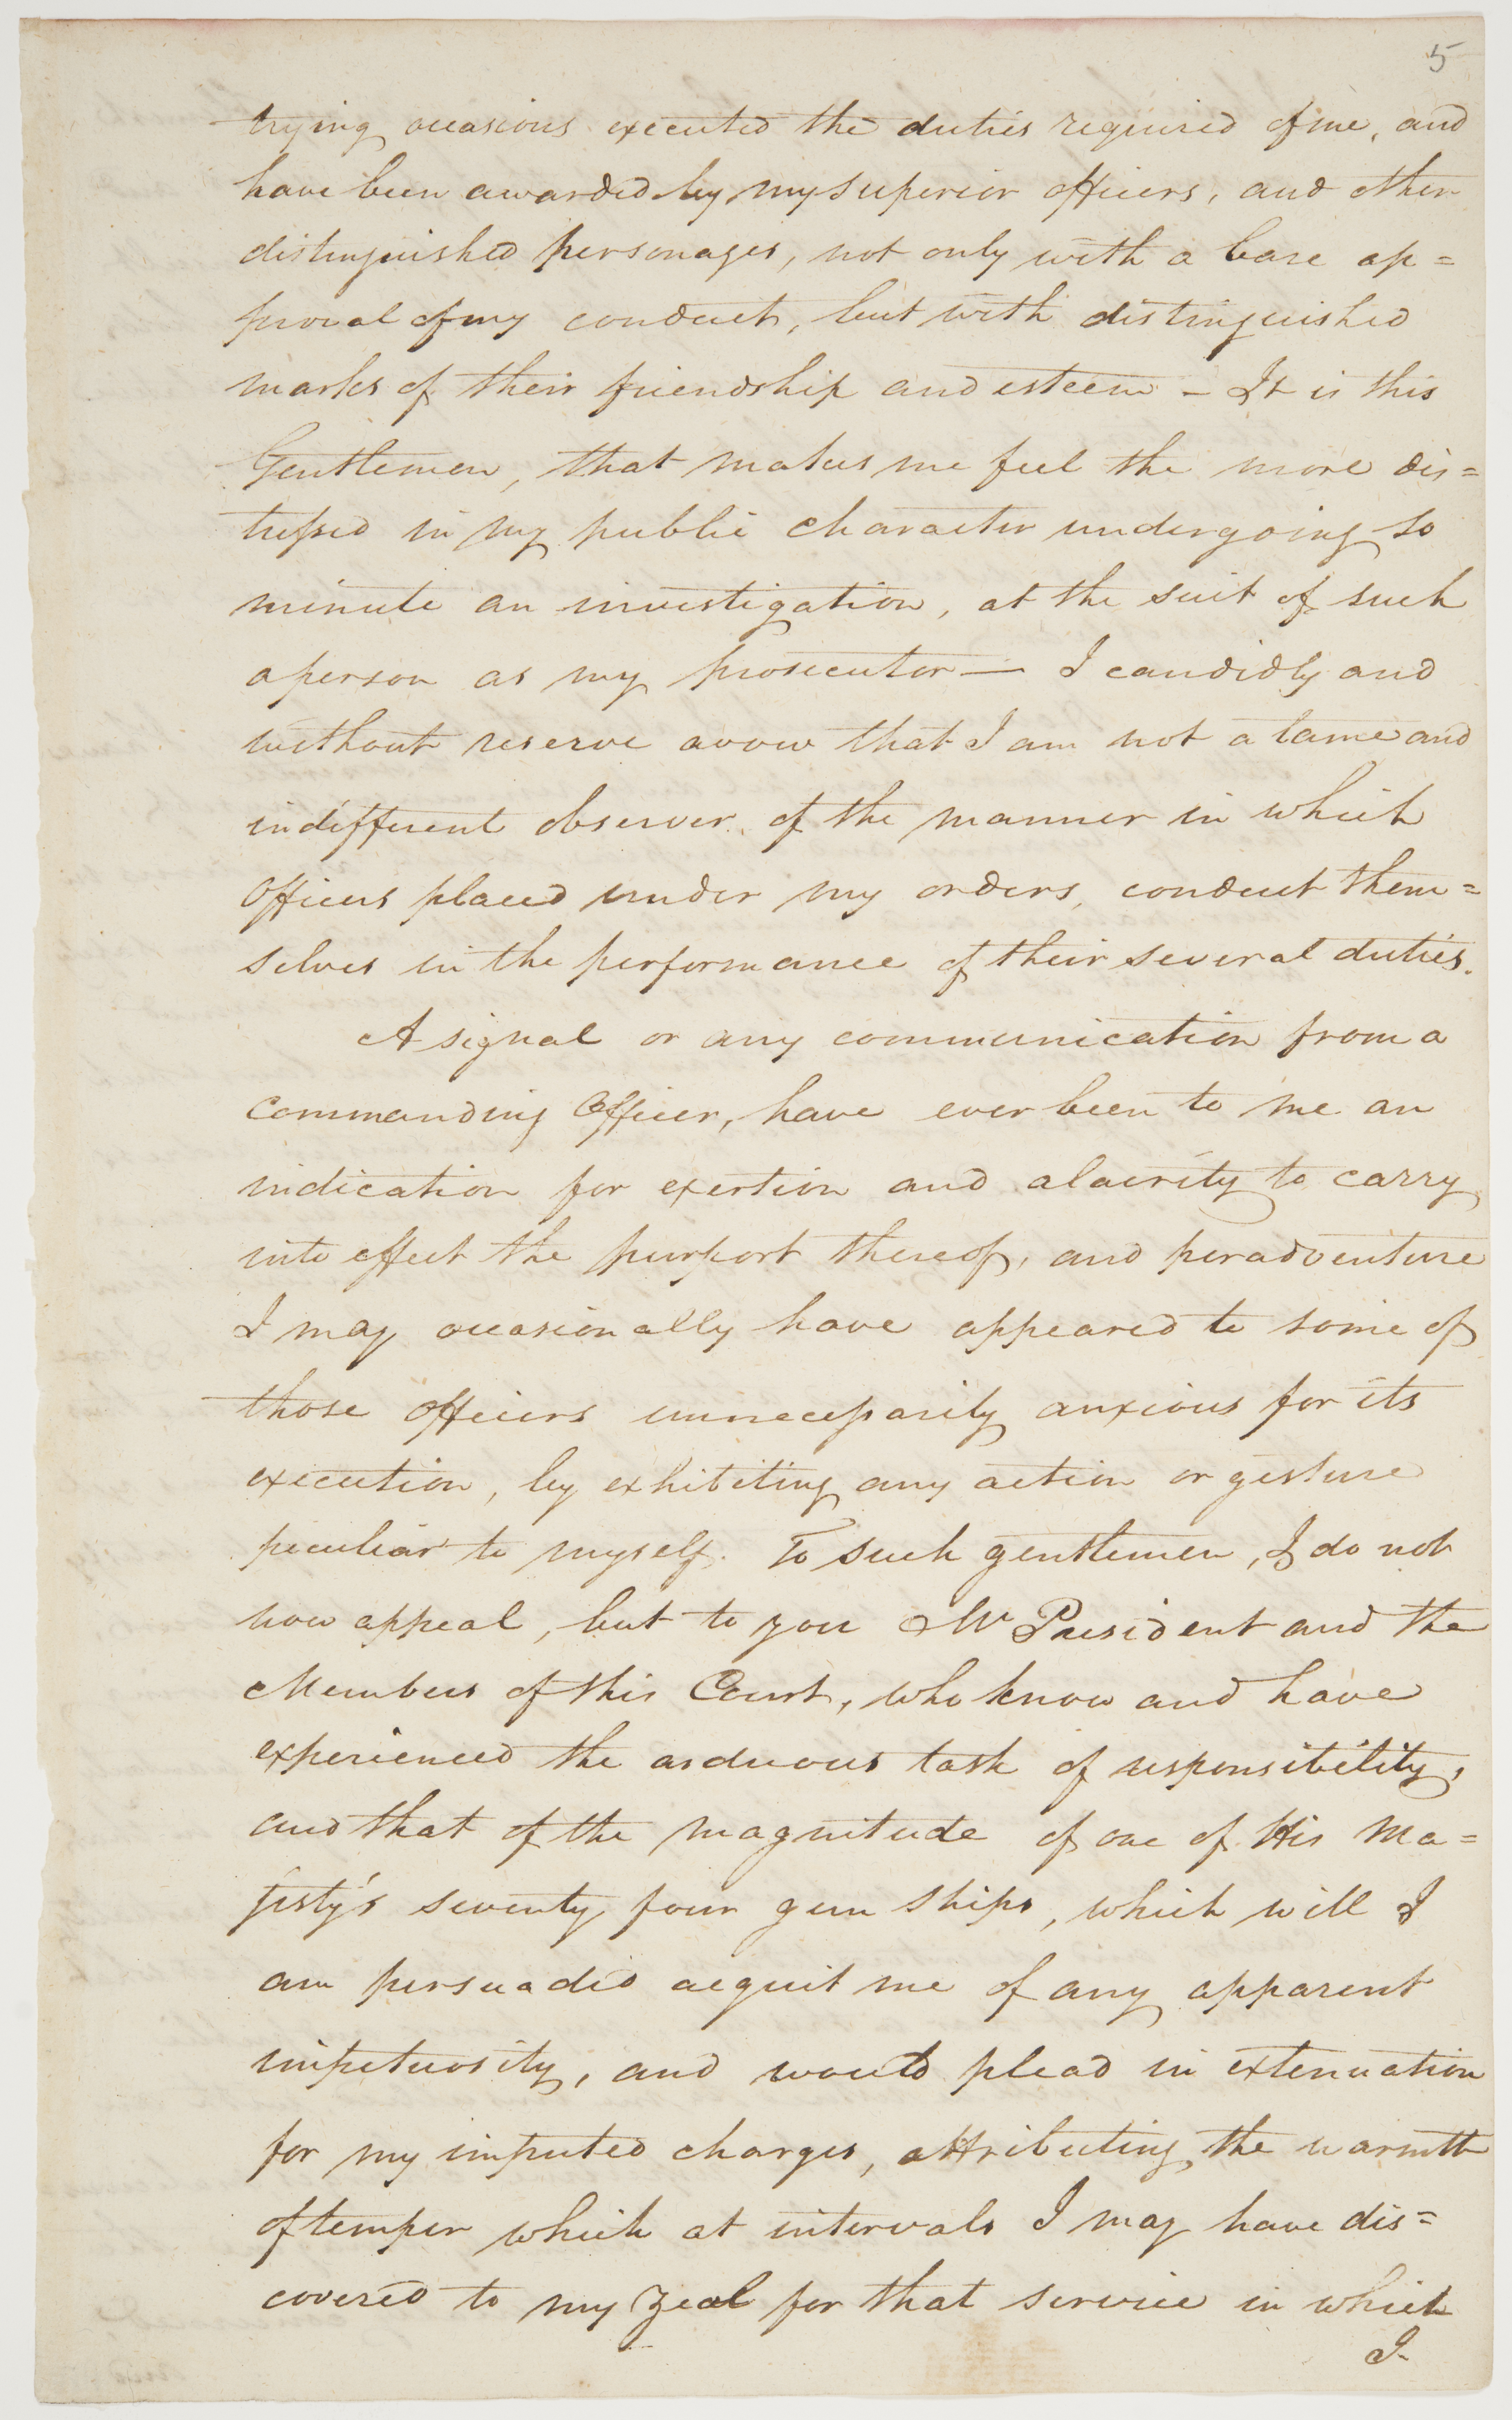 5
trying occasions executed the duties required of me, and
have been awarded by my superior officers, and other
distinguished personages, not only with a bare ap=
proval of my conduct, but with distinguished
marks of their friendship and esteem - It is this
Gentlemen, that makes me feel the more dis=
tressed in my public character undergoing so
minute an investigation, at the suit of such
a person as my prosecutor — I candidly and
without reserve avow that I am not a tame and
indifferent observer of the manner in which
Officers placed under my orders, conduct them=
selves in the performance of their several duties.
A signal or any communication from a
Commanding Officer, have ever been to me an
indication for exertion and alacrity to carry
into effect the purport thereof, and peradventure
I may occasionally have appeared to some of
those officers unnecessarily anxious for its
execution, by exhibiting any action or gesture
peculiar to myself. To such gentlemen, I do not
now appeal, but to you Mr President and the
Members of this Court, who know and have
experienced the arduous task of responsibility,
and that of the magnitude of one of His Ma=
jesty's seventy four gun ships, which will I
am persuaded acquit me of any apparent
impetuosity, and would plead in extenuation
for my imputed charges, attributing the warmth
of temper which at intervals I may have dis=
covered to my zeal for that service in which
I-